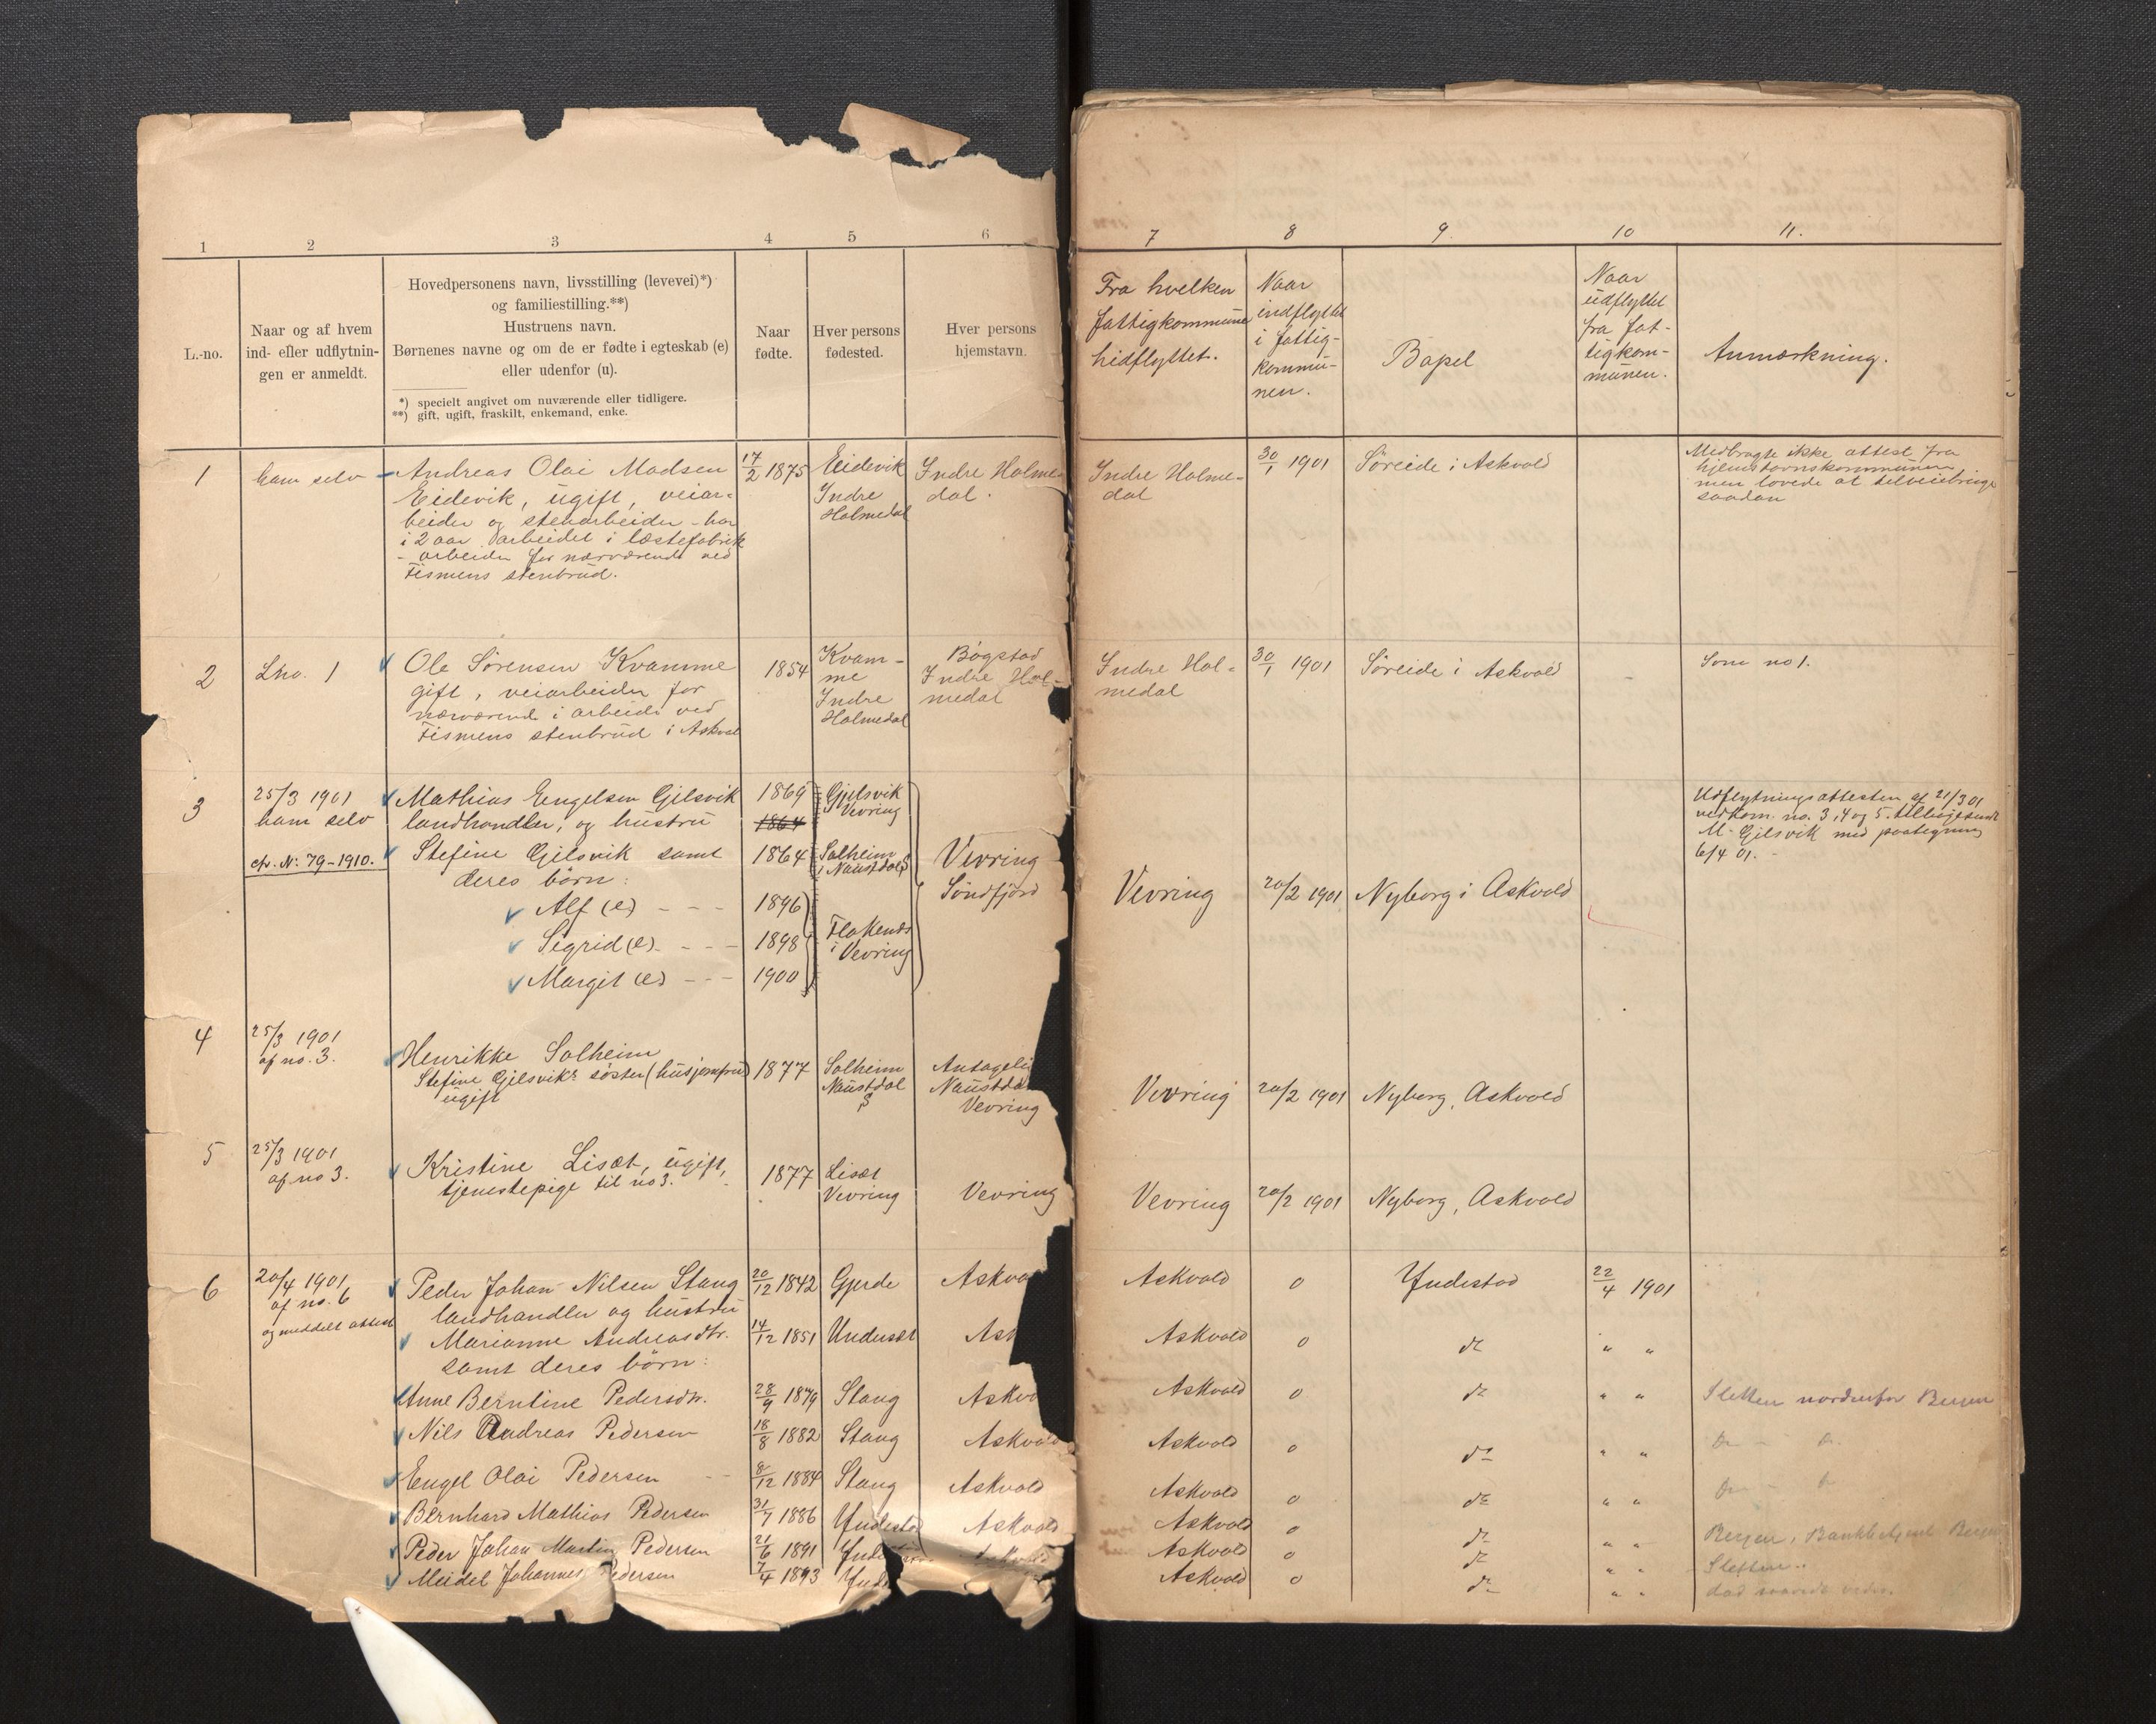 1
2
3
4
5
6
L.-no.
Naar og af hvem
ind- eller udflytnin-
gen er anmeldt.
Hovedpersonens navn, livsstilling (levevei)*)
og familiestilling.**)
Hustruens navn.
Børnenes navne og om de er fødte i egteskab (e)
eller udenfor (u).
*) specielt angivet om nuværende eller tidligere.
**) gift, ugift, fraskilt, enkemand, enke.
Naar
fødte.
Hver persons
fødested.
Hver persons
hjemstavn.
1
ham selv
Andreas Olai Madsen
Eidevik, ugift, veiar-
beider og stenarbeider - har
i 2 aar arbeidet i læstefabrik
- arbeider for nærværende ved
Fismens stenbrud.
17/2 1875
Eidevik
Indre
Holmedal
Indre Holme-
dal.
2
Lno. 1
Ole Sørensen Kvamme
gift, veiarbeider for
nærværende i arbeide ved
Fismens stenbrud i Askvol
1854
Kvam-
me
Indre
Holmedal
Bøgstad
Indre Hol-
medal
3
25/3 1901
ham selv
cfr. N: 79-1910.
Mathias Engelsen Gjelsvik
landhandler, og hustru
Stefine Gjelsvik samt
deres børn:
Alf (e) - - -
Sigrid (e) - - -
Margit (e) - - -
1869
1864
1864
1896
1898
1900
Gjelsvik
Vevring
Solheim
i Naustdal
Flokenes
i Vevring
Vevring
Søndfjord
4
25/3 1901
af no. 3.
Henrikke Solheim
Stefine Gjelsviks søster (husjomfru)
ugift
1877
Solheim
Naustdal
Antageli
Naustda
Vevring
5
25/3 1901
af no 3.
Kristine Lisæt, ugift,
tjenestepige til no 3.
1877
Lisæt
Vevring
Vevring
6
20/4 1901
af no. 6
og meddelt attest
Peder Johan Nilsen Stang
landhandler og hustru
Marianne Andreasdtr.
samt deres børn:
Anne Berntine Pedersdtr.
Nils Andreas Pedersen
Engel Olai Pedersen
Bernhard Mathias Pedersen
Peder Johan Martin Pedersen
Meidel Johannes Pedersen
20/12 1842
14/12 1851
28/9 1879
18/8 1882
8/12 1884
31/7 1886
21/6 1891
7/4 1893
Gjerde
Undersæt
Stang
Stang
Stang
Yndestad
Askvo
Ask
Askvo
Askvo
Askvold
Askvold
Askvold
7
8
9.
10
11.
Fra hvelken
fattigkommune
hidflyttet.
Naar
indflyttet
i fattig-
kommu-
nen.
Bopel
Naar
udflyttet
fra fat-
tigkom-
munen.
Anmærkning.
Indre Holme-
dal
30/1 1901
Søreide i Askvold
Medbragte ikke attest fra
hjemstavnskommunen
men lovede at tilveiebringe
saadan
Indre Hol-
medal
30/1 1901
Søreide i Askvold
-
Som no 1.
Vevring
20/2 1901
Nyborg i Askvold
Udflytningsattesten af 21/3 01
vedkom. no. 3, 4 og 5. tilbagesendt
M. Gjelsvik med paategning
6/4 01.-
Vevring
20/2 1901
Nyborg, Askvold
Vevring
20/2 1901
Nyborg, Askvold
Askvold
0
Yndestad
22/4 1901
Askvold
0
do
" "
Askvold
0
do
" "
Sletten nordenfor Bergen
Askvold
0
do
" "
Do - Do
Askvold
0
do
" "
Do - Do
Askvold
0
do
" "
Bergen,
Askvold
0
do
" "
Sletten..
Askvold
0
do
" "